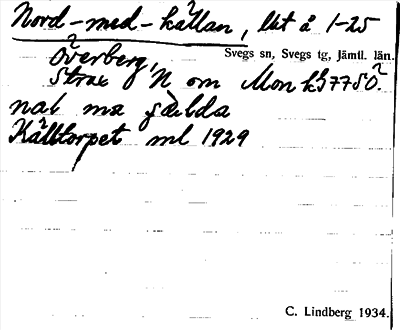 Nord-med-källan, lit å 1-25
Överberg,
Svegs sn, Svegs tg, Jämtl. län.
Strax N om Mon
nal ma
Källtorpet ml 1929
C. Lindberg 1934.